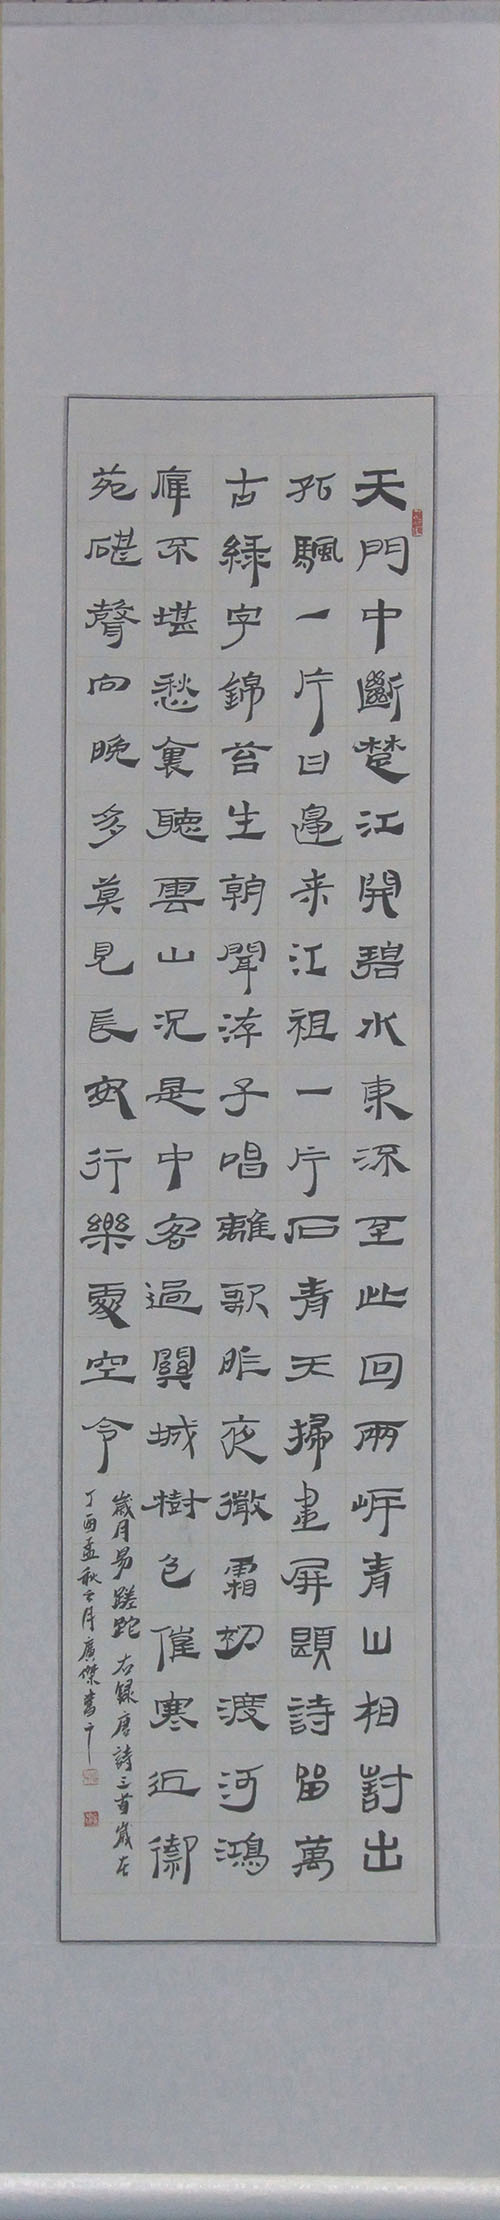 天門中斷楚江開碧水東流至此回兩岸青山相對出
孤颿一片日邊來江祖一片石青天掃畫屏題詩留萬
古綠字錦苔生朝聞游子唱離歌昨夜微霜初渡河鴻
雁不堪愁裏聽雲山況是中客過關城樹色催寒近御
苑碪聲向晚多莫見長安行樂處空令
歲月易蹉跎 右錄唐詩三首歲在
丁酉孟秋之月廣傑書